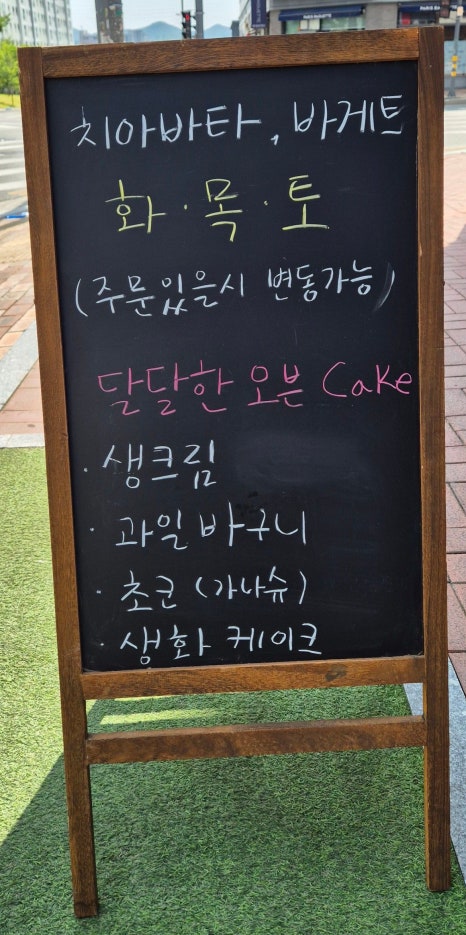 PARIS BAGUETTE
치아바타, 바게트
화·목·토
(주문있을시 변동가능)
달달한 오븐 Cake
· 생크림
· 과일 바구니
· 초코 (가나슈)
· 생화 케이크